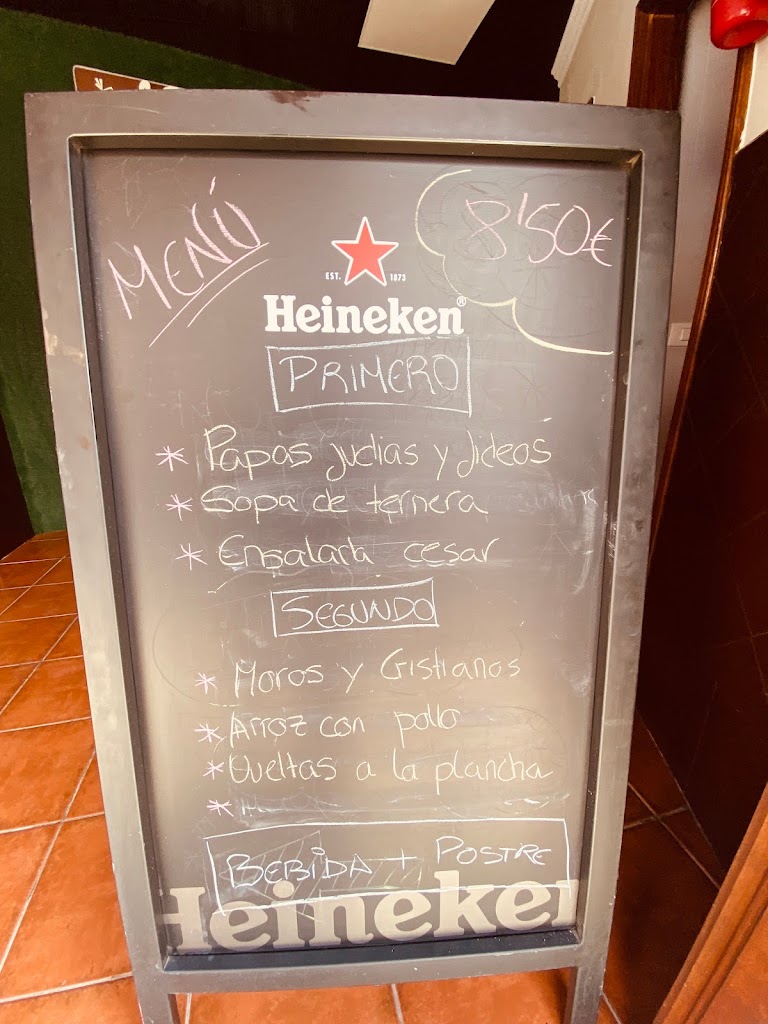 MENÚ
8'50€
EST. 1873
Heineken®
PRIMERO
* Papas judias y fideos
* Sopa de ternera
* Ensalada cesar
SEGUNDO
* Moros y Cristianos
* Arroz con pollo
* Vueltas a la plancha
*
BEBIDA + POSTRE
Heineken